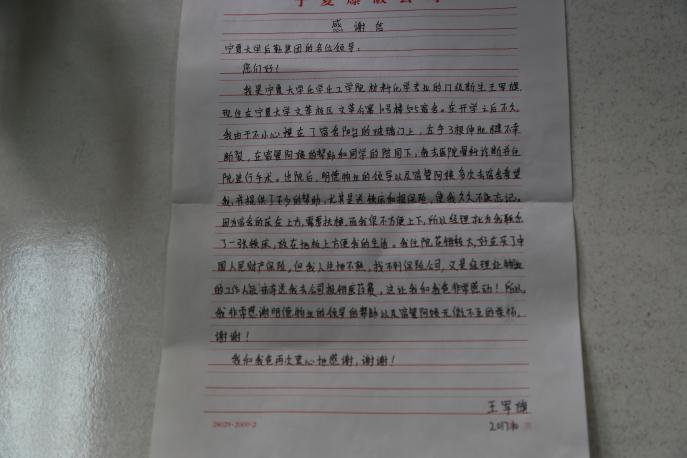 感谢信
宁夏大学后勤集团的各位领导:
您们好!
我是宁夏大学化学化工学院材料化学专业的 级新生王军旗,
现住在宁夏大学文萃校区文萃公寓 号楼505宿舍。在开学之后不久,
我由于不小心撞在了宿舍阳台的玻璃门上,左手3根伸肌腱不幸
断裂,在宿管阿姨的帮助和同学的陪同下,我去医院骨科诊断并住
院进行手术。出院后,明德物业的领导以及宿管阿姨多次去宿舍看望
我,并提供了不少的帮助,尤其是送铁床和担保险,使我久久不能忘记。
因为宿舍的床在上方,需要扶梯,而我很不方便上下,所以经理 为我联系
了一张铁床,放在地板上方便我的生活。我住院花销较大,好在买了中
国人民财产保险,但我人生地不熟,找不到保险公司,又是经理让物业
的工作人员 送我去公司报销医药费,这让我和我爸非常感动!所以,
我非常感谢明德物业的领导的帮助以及宿管阿姨无微不至的关怀,
谢谢!
我和我爸再次衷心地感谢,谢谢!
王军旗
2017
28029-2000-2